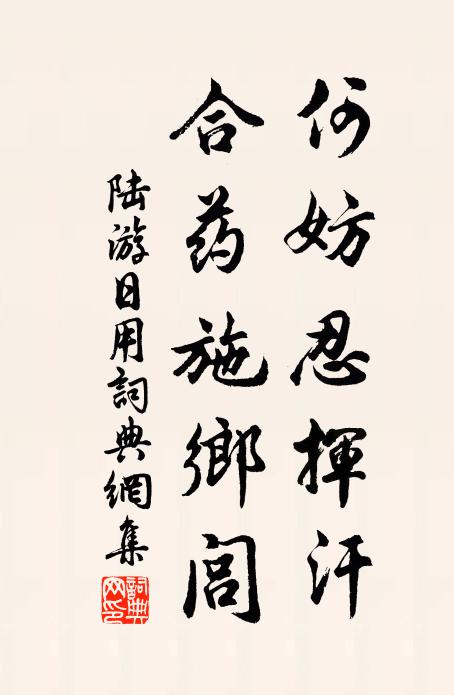 何妨忍揮汗
合药施鄉闾
陆游日用詞典網集
詞典網印